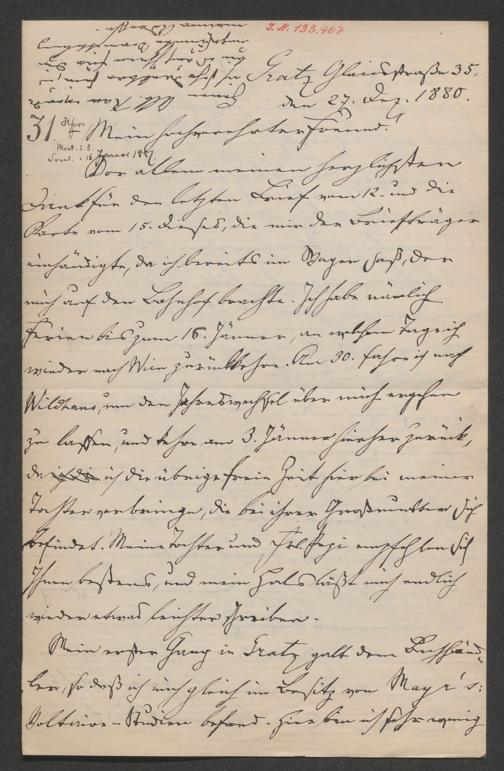 I.N. 133.907
Gratz Glacisstraße 35.
den 27. Dez. 1880.
31. Mein hochverehrter Freund!
Vor allem meinen herzlichsten
Dank für den letzten Brief vom 12. und die
Karte vom 15. dieses, die mir der Briefträger
einhändigte, da ich bereits im Wagen saß, der
mich auf den Bahnhof brachte. Ich habe nämlich
Ferien bis zum 16. Jänner, an welchem Tage ich
wieder nach Wien zurückkehre. Am 30. fahre ich nach
Wildhaus, um den Jahreswechsel über mich ergehen
zu lassen, und kehre am 3. Jänner hieher zurück,
da ich die übrige freie Zeit hier bei meiner
Tochter verbringe, die bei ihrer Großmutter sich
befindet. Meine Tochter und Frl. Pepi empfehlen sich
Ihnen bestens, und mein Hals läßt mich endlich
wieder etwas leichter schreiben.
Mein erster Gang in Gratz galt dem Buchhänd-
ler, so daß ich mich gleich im Besitz von Mayr's
Voltaire-Studien befand. Hier bin ich sehr wenig